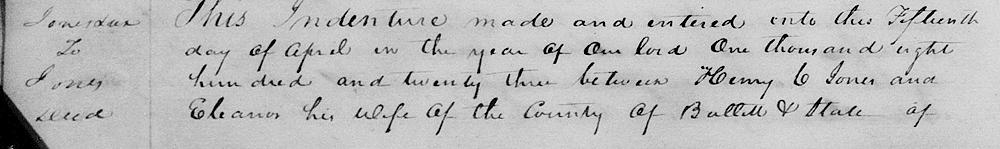 Jones &ux This Indenture made and entered into this Fifteenth
To day of April in the year of Our lord One thousand eight
Jones hundred and twenty three between Henry C Jones and
deed Eleanor his wife of the County of Bullitt & State of